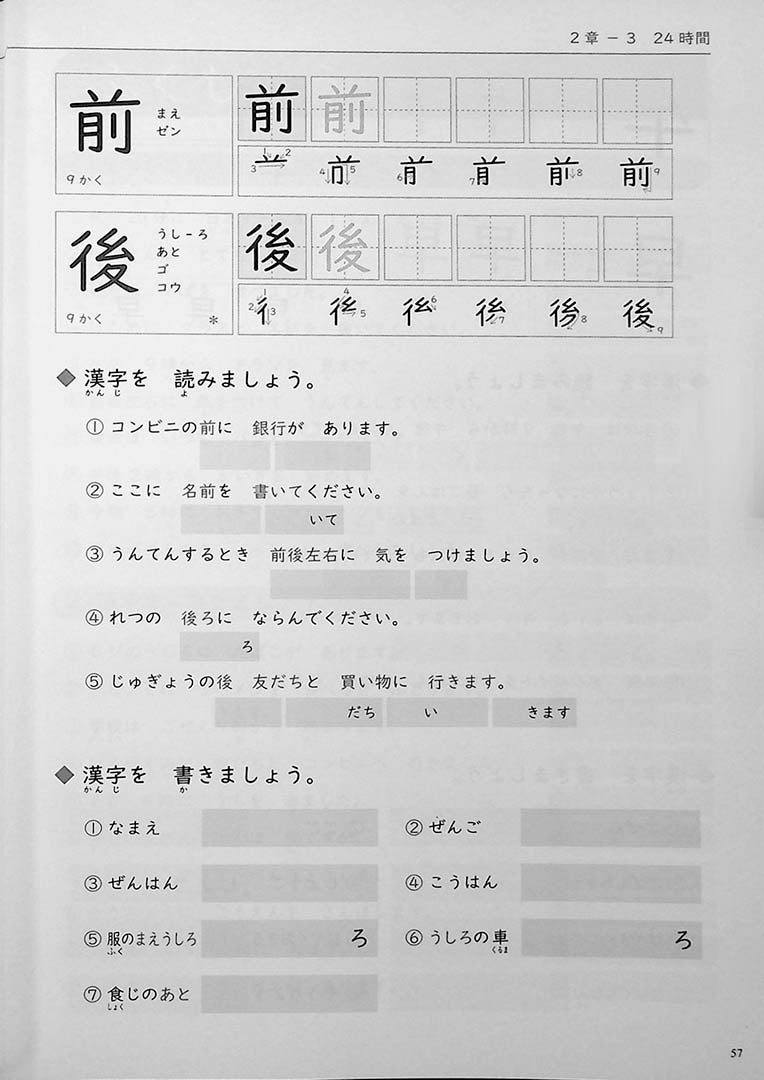 2章－3 24時間
前 まえ ゼン 9かく
前 前
1 2 3 4 5 6 7 8 9
後 うし-ろ あと ゴ コウ 9かく *
後 後
1 2 3 4 5 6 7 8 9
◆漢字を 読みましょう。
かんじ よ
①コンビニの前に 銀行が あります。
②ここに 名前を 書いてください。
いて
③うんてんするとき 前後左右に 気を つけましょう。
④れつの 後ろに ならんでください。
ろ
⑤じゅぎょうの後 友だちと 買い物に 行きます。
だち い きます
◆漢字を 書きましょう。
かんじ か
①なまえ ②ぜんご
③ぜんはん ④こうはん
⑤服のまえうしろ ろ ⑥うしろの車 ろ
ふく くるま
⑦食じのあと
しょく
57